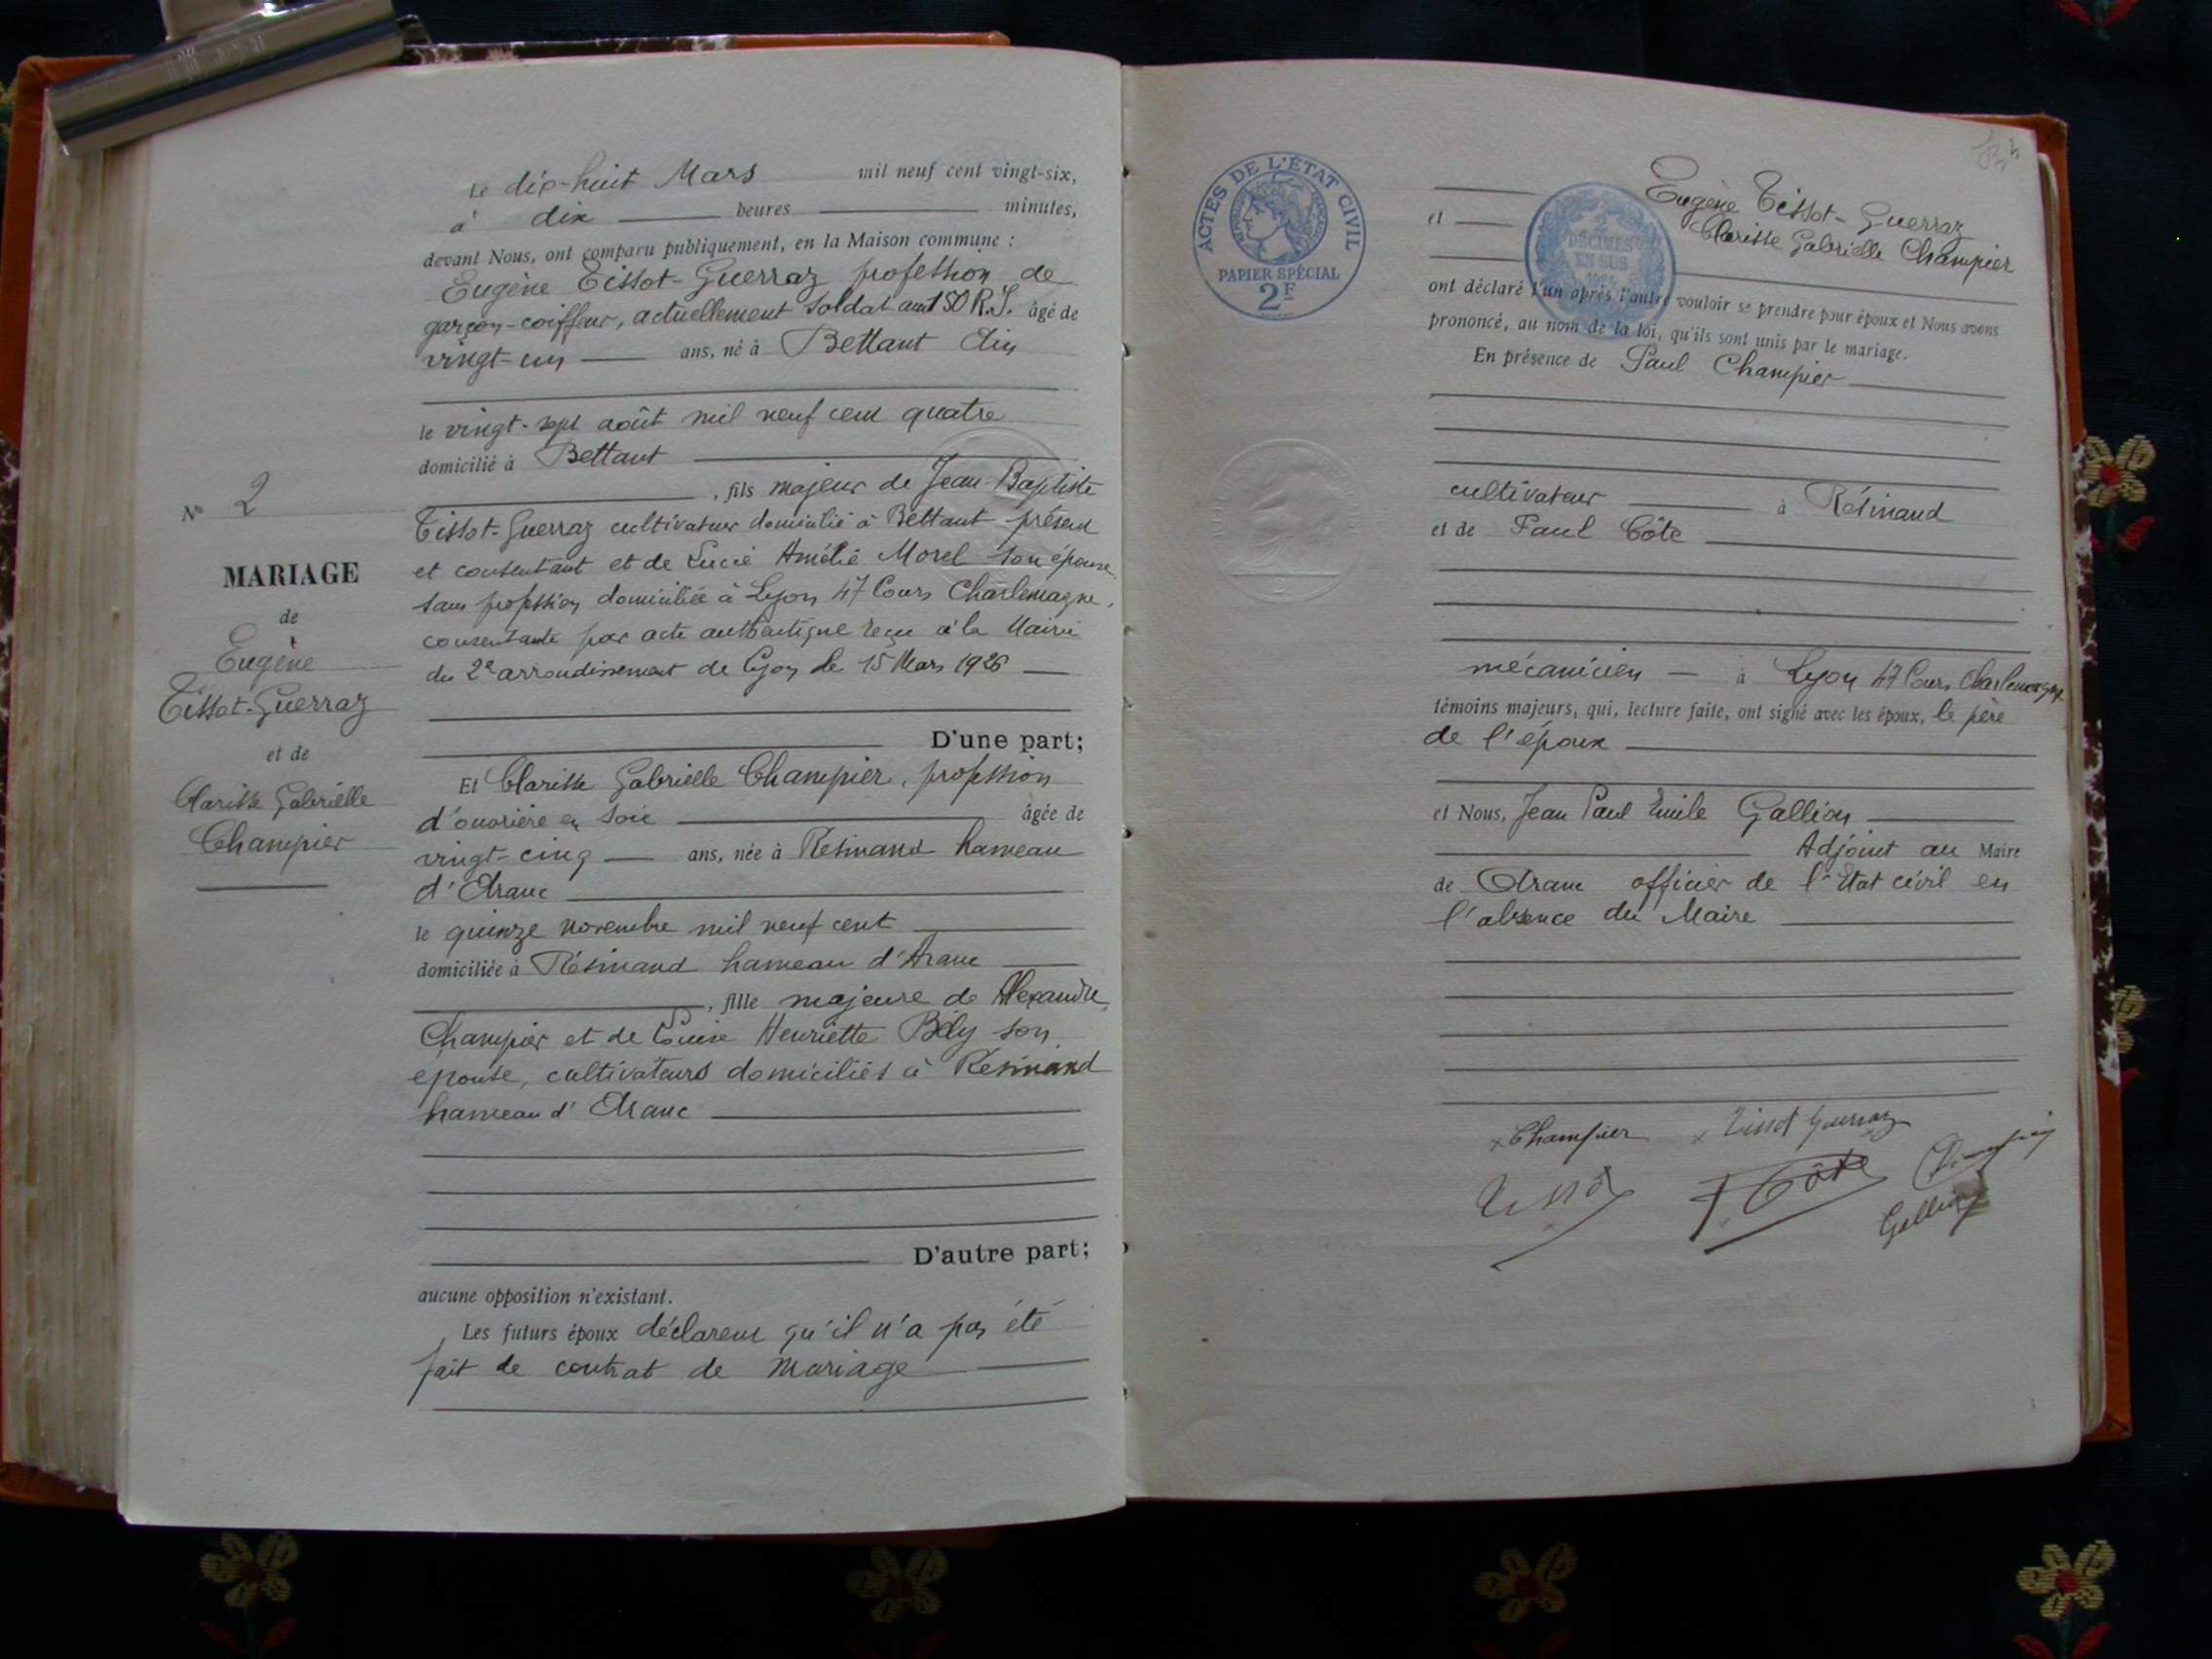 Le dix-huit Mars mil neuf cent vingt-six,
à dix heures minutes,
devant Nous, ont comparu publiquement, en la Maison commune :
Eugène Tissot-Guerraz profession de
garçon-coiffeur, actuellement soldat au 150 R.I. âgé de
vingt-un ans, né à Bettant Ain
le vingt-sept août mil neuf cent quatre
domicilié à Bettant
, fils majeur de Jean-Baptiste
Tissot-Guerraz cultivateur domicilié à Bettant présent
et consentant et de Lucie Amélie Morel son épouse
sans profession domiciliée à Lyon 47 Cours Charlemagne,
consentante par acte authentique reçu à la Mairie
du 2e arrondissement de Lyon le 15 Mars 1926
D'une part;
N° 2
MARIAGE
de
Eugène
Tissot-Guerraz
et de
Clarisse Gabrielle
Champier
Et Clarisse Gabrielle Champier, profession
d'ouvrière en soie âgée de
vingt-cinq ans, née à Résinand hameau
d'Aranc
le quinze novembre mil neuf cent
domiciliée à Résinand hameau d'Aranc
, fille majeure de Alexandre
Champier et de Louise Henriette Bély son
épouse, cultivateurs domiciliés à Résinand
hameau d'Aranc
D'autre part;
aucune opposition n'existant.
Les futurs époux déclarent qu'il n'a pas été
fait de contrat de mariage
ACTES DE L'ÉTAT CIVIL
PAPIER SPÉCIAL
2F
2
DÉCIMES
EN SUS
Eugène Tissot-Guerraz
et Clarisse Gabrielle Champier
ont déclaré l'un après l'autre vouloir se prendre pour époux et Nous avons
prononcé, au nom de la loi, qu'ils sont unis par le mariage.
En présence de Paul Champier
cultivateur à Résinand
et de Paul Côte
mécanicien à Lyon 47 Cours Charlemagne
témoins majeurs, qui, lecture faite, ont signé avec les époux, le père
de l'époux
et Nous, Jean Paul Emile Gallion
Adjoint au Maire
de Aranc officier de l'Etat civil en
l'absence du Maire
Champier Tissot Guerraz
Tissot P Côte Champier
Gallion